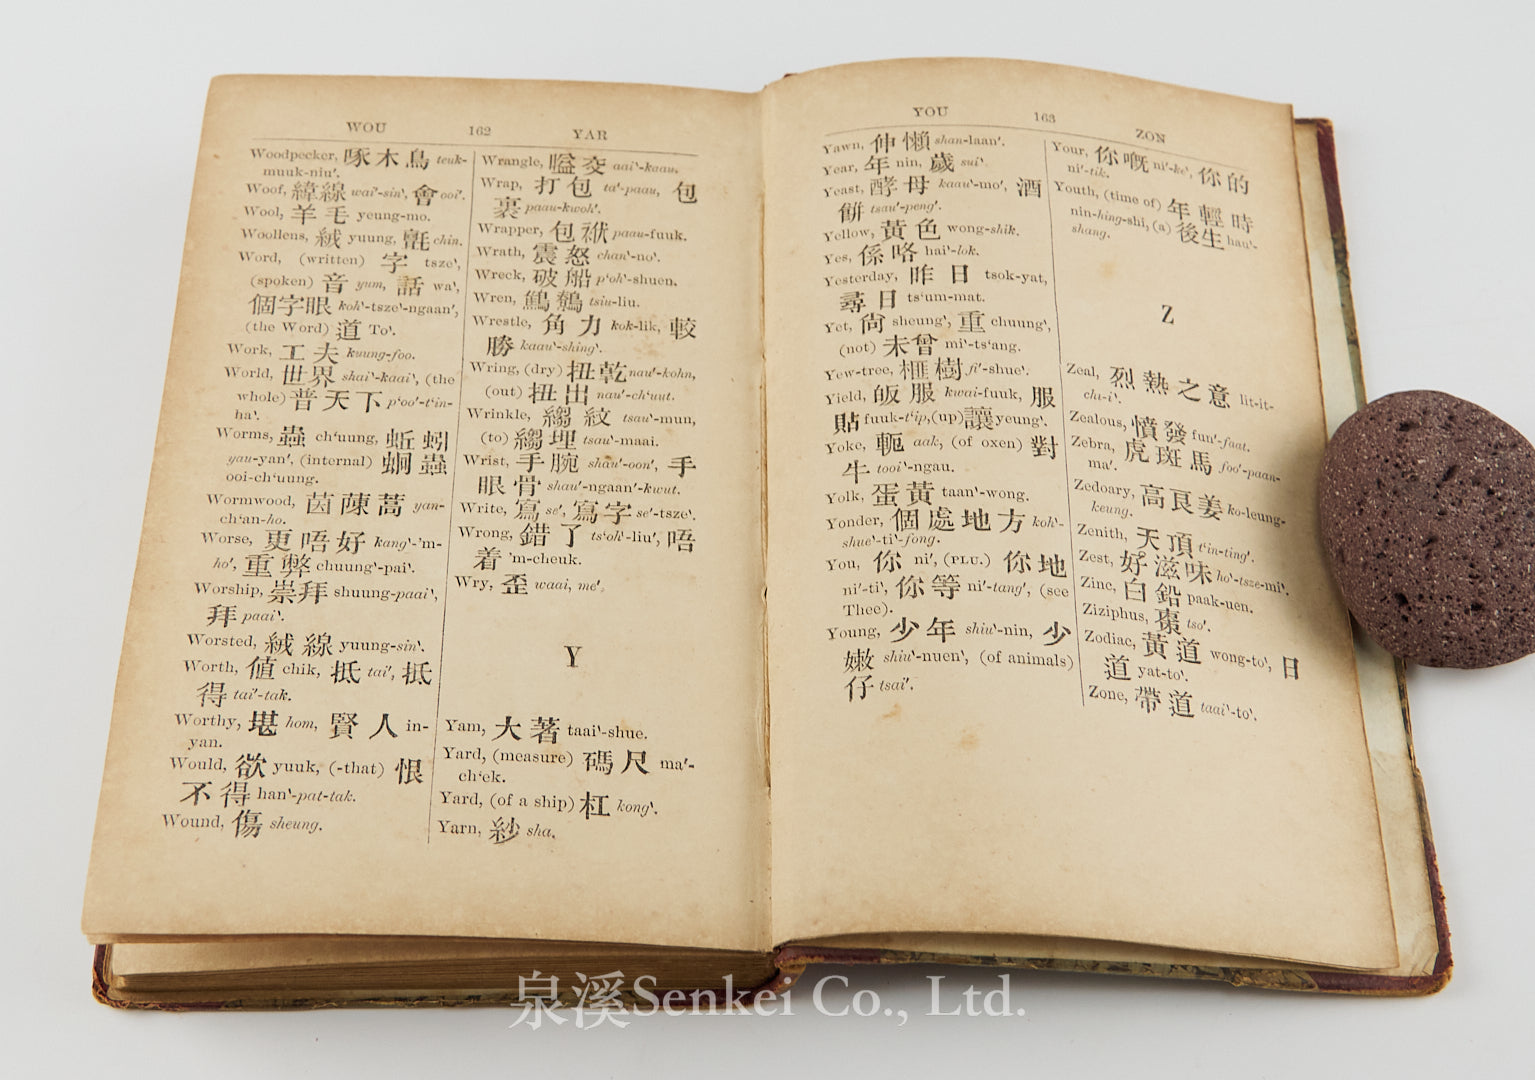 WOU 162 YAR
Woodpecker, 啄木鳥 teuk-
muuk-niu'.
Woof, 緯線 wai'-sin', 會 ooi'.
Wool, 羊毛 yeung-mo.
Woollens, 絨 yuung, 氈 chin.
Word, (written) 字 tsze',
(spoken) 音 yum, 話 wa',
個字眼 koh'-tsze'-ngaan',
(the Word) 道 To'.
Work, 工夫 kuung-foo.
World, 世界 shai'-kaai', (the
whole) 普天下 p'oo'-t'in-
ha'.
Worms, 蟲 ch'uung, 蚯蚓
yau-yan', (internal) 蛔蟲
ooi-ch'uung.
Wormwood, 茵蔯蒿 yan-
ch'an-ho.
Worse, 更唔好 kang'-'m-
ho', 重弊 chuung'-pai'.
Worship, 崇拜 shuung-paai',
拜 paai'.
Worsted, 絨線 yuung-sin'.
Worth, 値 chik, 抵 tai', 抵
得 tai'-tak.
Worthy, 堪 hom, 賢人 in-
yan.
Would, 欲 yuuk, (-that) 恨
不得 han'-pat-tak.
Wound, 傷 sheung.
Wrangle, 嗌交 aai'-kaau.
Wrap, 打包 ta'-paau, 包
裹 paau-kwoh'.
Wrapper, 包袱 paau-fuuk.
Wrath, 震怒 chan'-no'.
Wreck, 破船 p'oh'-shuen.
Wren, 鷦鷯 tsiu-liu.
Wrestle, 角力 kok-lik, 較
勝 kaau'-shing'.
Wring, (dry) 扭乾 nau'-kohn,
(out) 扭出 nau'-ch'uut.
Wrinkle, 縐紋 tsau'-mun,
(to) 縐埋 tsau'-maai.
Wrist, 手腕 shau'-oon', 手
眼骨 shau'-ngaan'-kwut.
Write, 寫 se', 寫字 se'-tsze'.
Wrong, 錯了 ts'oh'-liu', 唔
着 'm-cheuk.
Wry, 歪 waai, me'.
Y
Yam, 大薯 taai'-shue.
Yard, (measure) 碼尺 ma'-
ch'ek.
Yard, (of a ship) 杠 kong'.
Yarn, 紗 sha.
YOU 163 ZON
Yawn, 伸懶 shan-laan'.
Year, 年 nin, 歲 sui'.
Yeast, 酵母 kaau'-mo', 酒
餅 tsau'-peng'.
Yellow, 黃色 wong-shik.
Yes, 係咯 hai'-lok.
Yesterday, 昨日 tsok-yat,
尋日 ts'um-mat.
Yet, 尙 sheung', 重 chuung',
(not) 未曾 mi'-ts'ang.
Yew-tree, 榧樹 fi'-shue'.
Yield, 皈服 kwai-fuuk, 服
貼 fuuk-t'ip, (up) 讓 yeung'.
Yoke, 軛 aak, (of oxen) 對
牛 tooi'-ngau.
Yolk, 蛋黃 taan'-wong.
Yonder, 個處地方 koh'-
shue'-ti'-fong.
You, 你 ni', (PLU.) 你地
ni'-ti', 你等 ni'-tang', (see
Thee).
Young, 少年 shiu'-nin, 少
嫩 shiu'-nuen', (of animals)
仔 tsai'.
Your, 你嘅 ni'-ke', 你的
ni'-tik.
Youth, (time of) 年輕時
nin-hing-shi, (a) 後生 hau'-
shang.
Z
Zeal, 烈熱之意 lit-it-
chi-i'.
Zealous, 憤發 fun'-faat.
Zebra, 虎斑馬 foo'-paan-
ma'.
Zedoary, 高良姜 ko-leung-
keung.
Zenith, 天頂 t'in-ting'.
Zest, 好滋味 ho'-tsze-mi'.
Zinc, 白鉛 paak-uen.
Ziziphus, 棗 tso'.
Zodiac, 黃道 wong-to', 日
道 yat-to'.
Zone, 帶道 taai'-to'.
泉溪Senkei Co., Ltd.